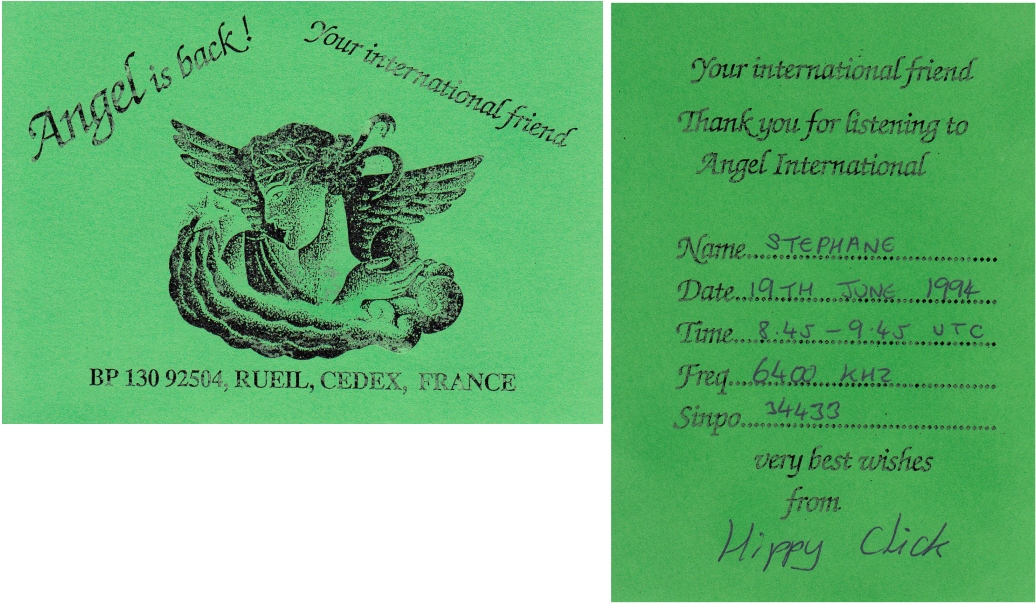 Angel is back!
Your international friend
BP 130 92504, RUEIL, CEDEX, FRANCE
Your international friend
Thank you for listening to
Angel International
Name STEPHANE
Date 19TH JUNE 1994
Time 8.45 - 9.45 UTC
Freq 6400 KHZ
Sinpo 34433
very best wishes
from
Hippy Click